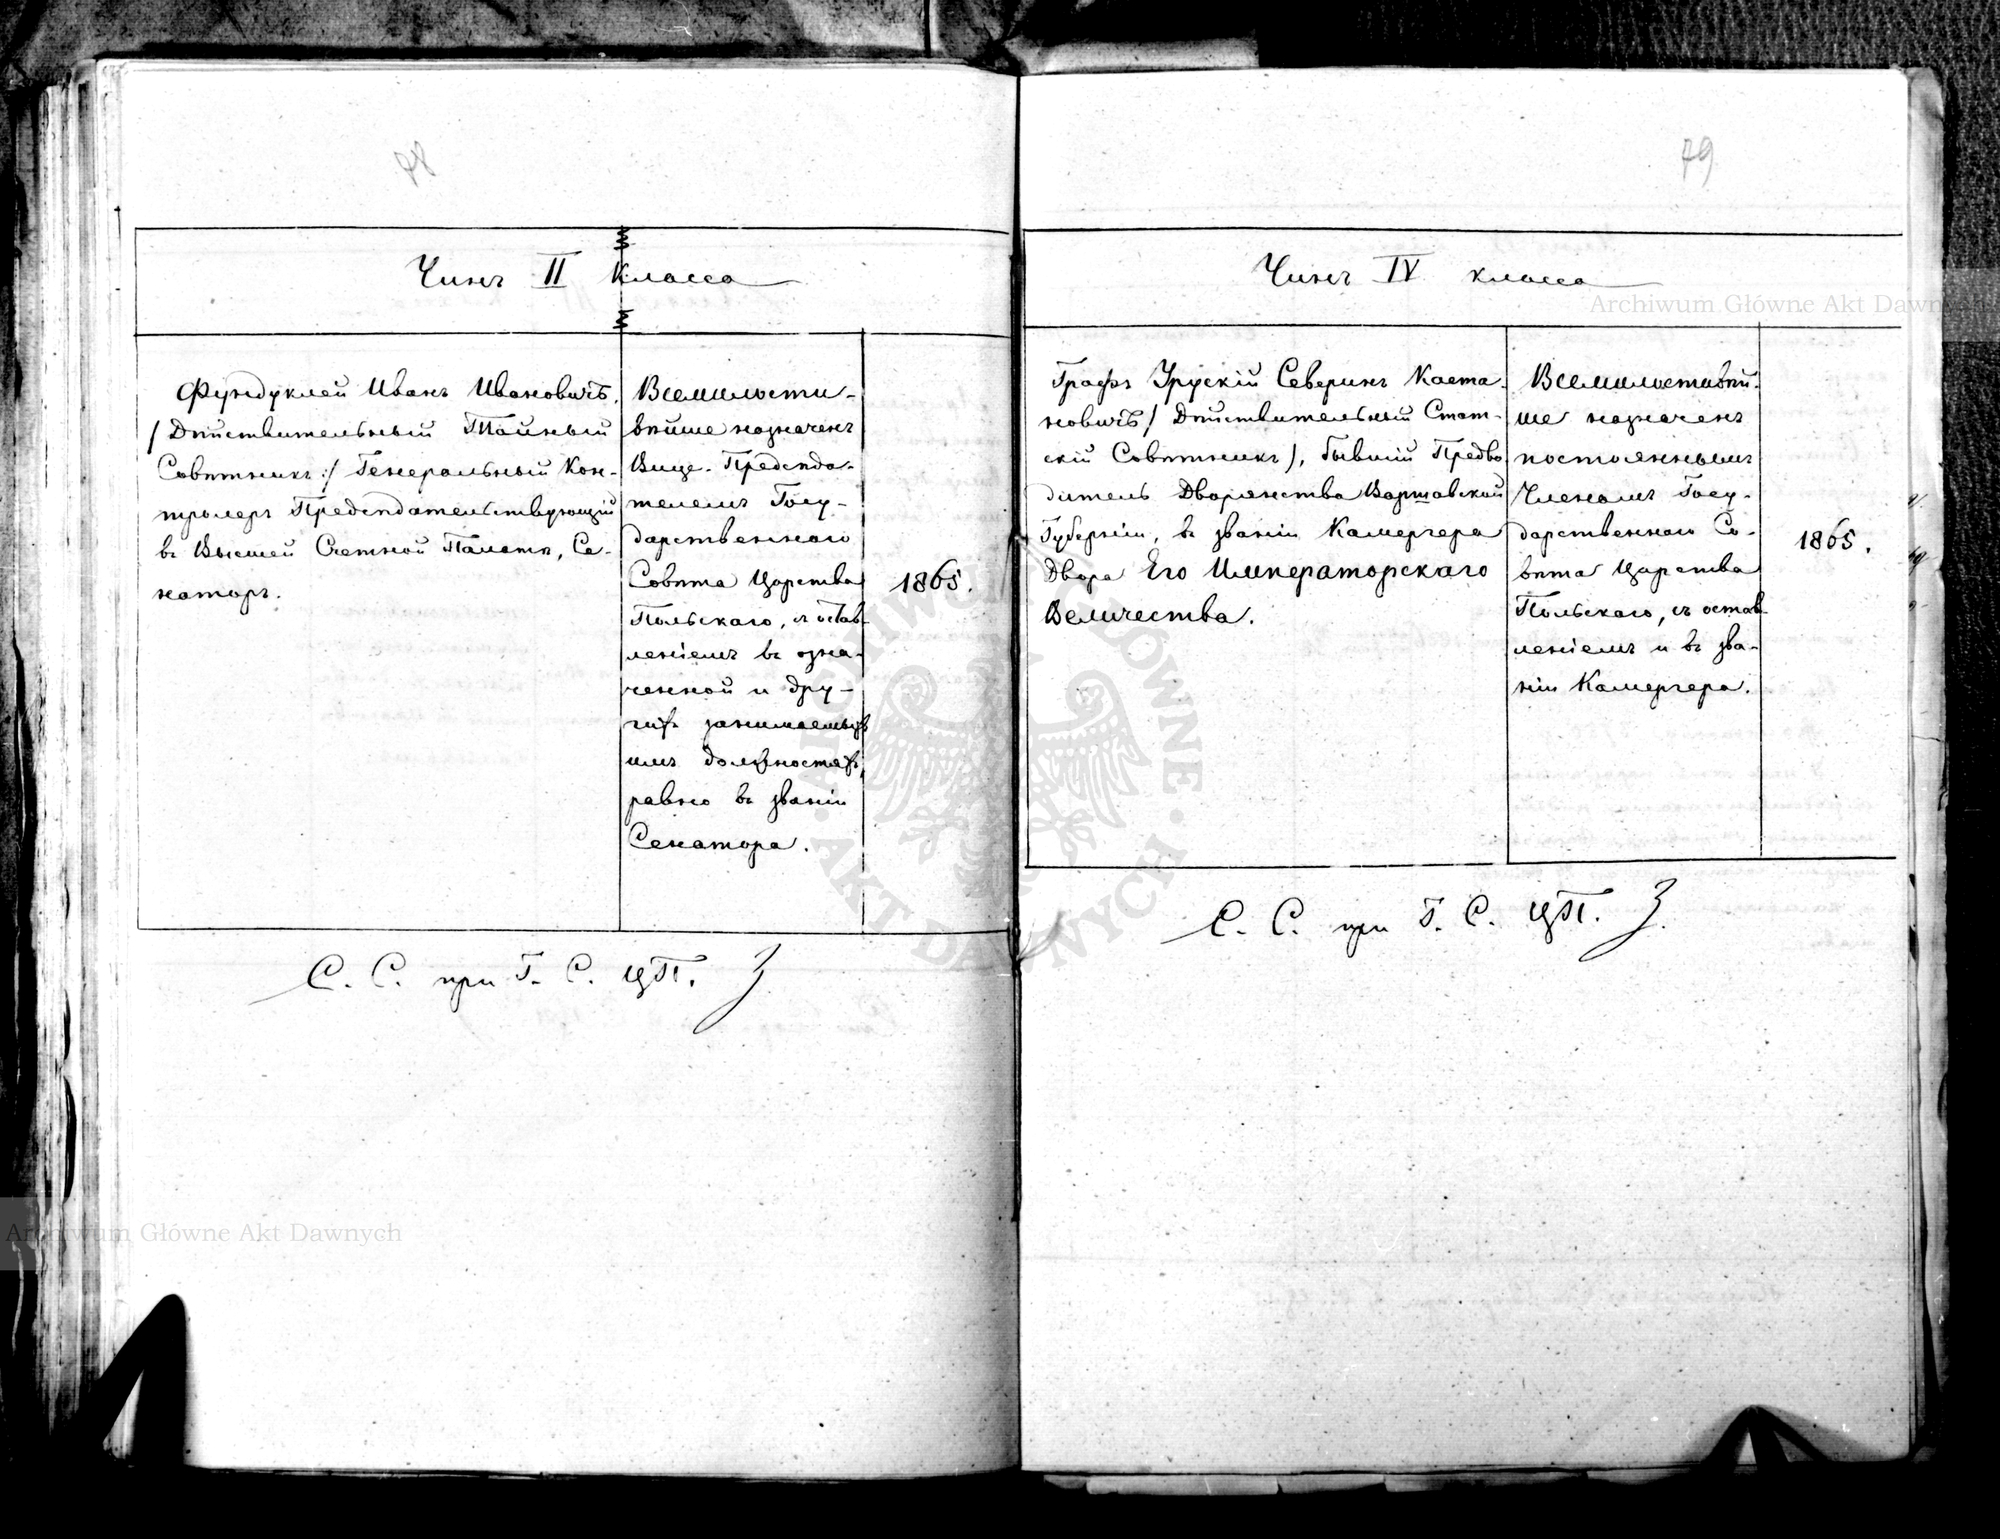 78
Чинъ II класса
Фундуклей Иванъ Ивановичъ.
/Дѣйствительный Тайный
Совѣтникъ:/ Генеральный Кон-
тролеръ Предсѣдательствующій
въ Высшей Счетной Палатѣ, Се-
наторъ.
Всемилости-
вѣйше назначенъ
Вице-Предсѣда-
телемъ Госу-
дарственнаго
Совѣта Царства
Польскаго, съ остав-
леніемъ въ озна-
ченной и дру-
гихъ занимаемыхъ
имъ должностяхъ,
равно въ званіи
Сенатора.
1865.
С. С. при Г. С. ЦП. З
79
Чинъ IV класса
Графъ Урускій Северинъ Каета-
новичъ/ Дѣйствительный Стат-
скій Совѣтникъ/, бывшій Предво
дитель Дворянства Варшавской
Губерніи, въ званіи Камергера
Двора Его Императорскаго
Величества.
Всемилостивѣй-
ше назначенъ
постояннымъ
Членомъ Госу-
дарственнаго Со-
вѣта Царства
Польскаго, съ остав
леніемъ и въ зва-
ніи Камергера.
1865.
С. С. при Г. С. ЦП. З.
Archiwum Główne Akt Dawnych
Archiwum Główne Akt Dawnych
ARCHIWUM GŁÓWNE · AKT DAWNYCH ·